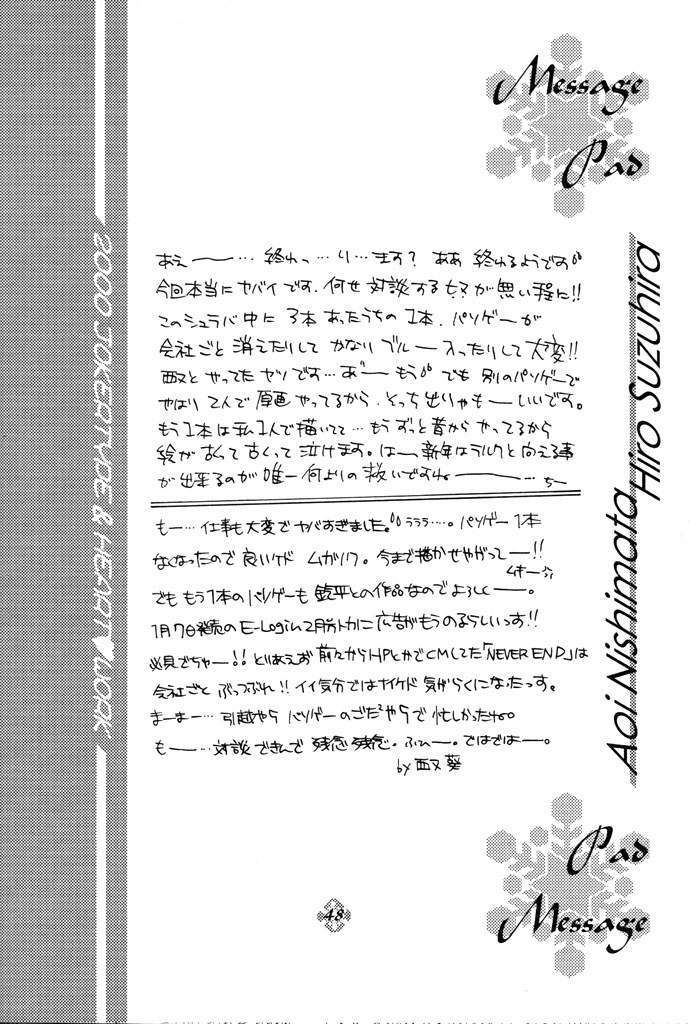 Message
Pad
Hiro Suzuhira
Aoi Nishimata
2000 JOKERTYPE & HEART♥WORK
あぇ――…終わっ…り…ます? ああ 終わるようです
今回本当にヤバイです. 何せ 対談するヒマが無い程に!!
このシュラバ中に 3本あったうちの 1本. パソゲーが
会社ごと 消えたりして かなりブルー 入ったりして 大変!!
西又と やってたヤツです…あ゛ー もう でも 別のパソゲーで
やはり 2人で 原画 やってるから. そっち出りゃもーいいです。
もう1本は私1人で描いてて…もうずっと昔から やってるから
絵が古くて古くって泣けます。は―、新年はラルクと向える事
が出来るのが唯一何よりの救いですね―――…ちー
もー…仕事も大変でヤバすぎました。うううう…。パソゲー1本
なくなったので良いケド ムカツク。今まで描かせやがってー!!
ムキー
でももう1本のパソゲーも 鈴平との作品なのでよろしくー。
1月7日発売の E-Login 2月号トカに広告がもうのるらしいっす!!
必見でちゃー!! とりあえず 前々からHPとかでCMしてた「NEVER END」は
会社ごと ぶっつぶれ!! イイ気分ではナイケド 気がらくになたっす。
まーまー…引越やら パソゲーのごたごたやらで 忙しかったね。
もー…対談できんで 残念 残念。ふひー。ではではー。
by 西又 葵
48
Pad
Message